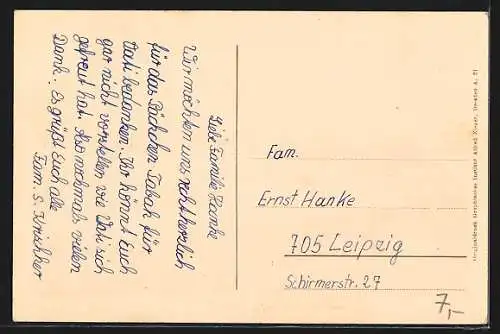 Liebe Familie Hanke
Wir möchten uns recht herzlich
für das Päckchen Tabak für
Vati bedanken. Ihr könnt Euch
gar nicht vorstellen wie Vati sich
gefreut hat. Also nochmals vielen
Dank. Es grüßt Euch alle
Fam. S. Kirschker
Fam.
Ernst Hanke
705 Leipzig
Schirmerstr. 27
7,-
Dresden A. 21